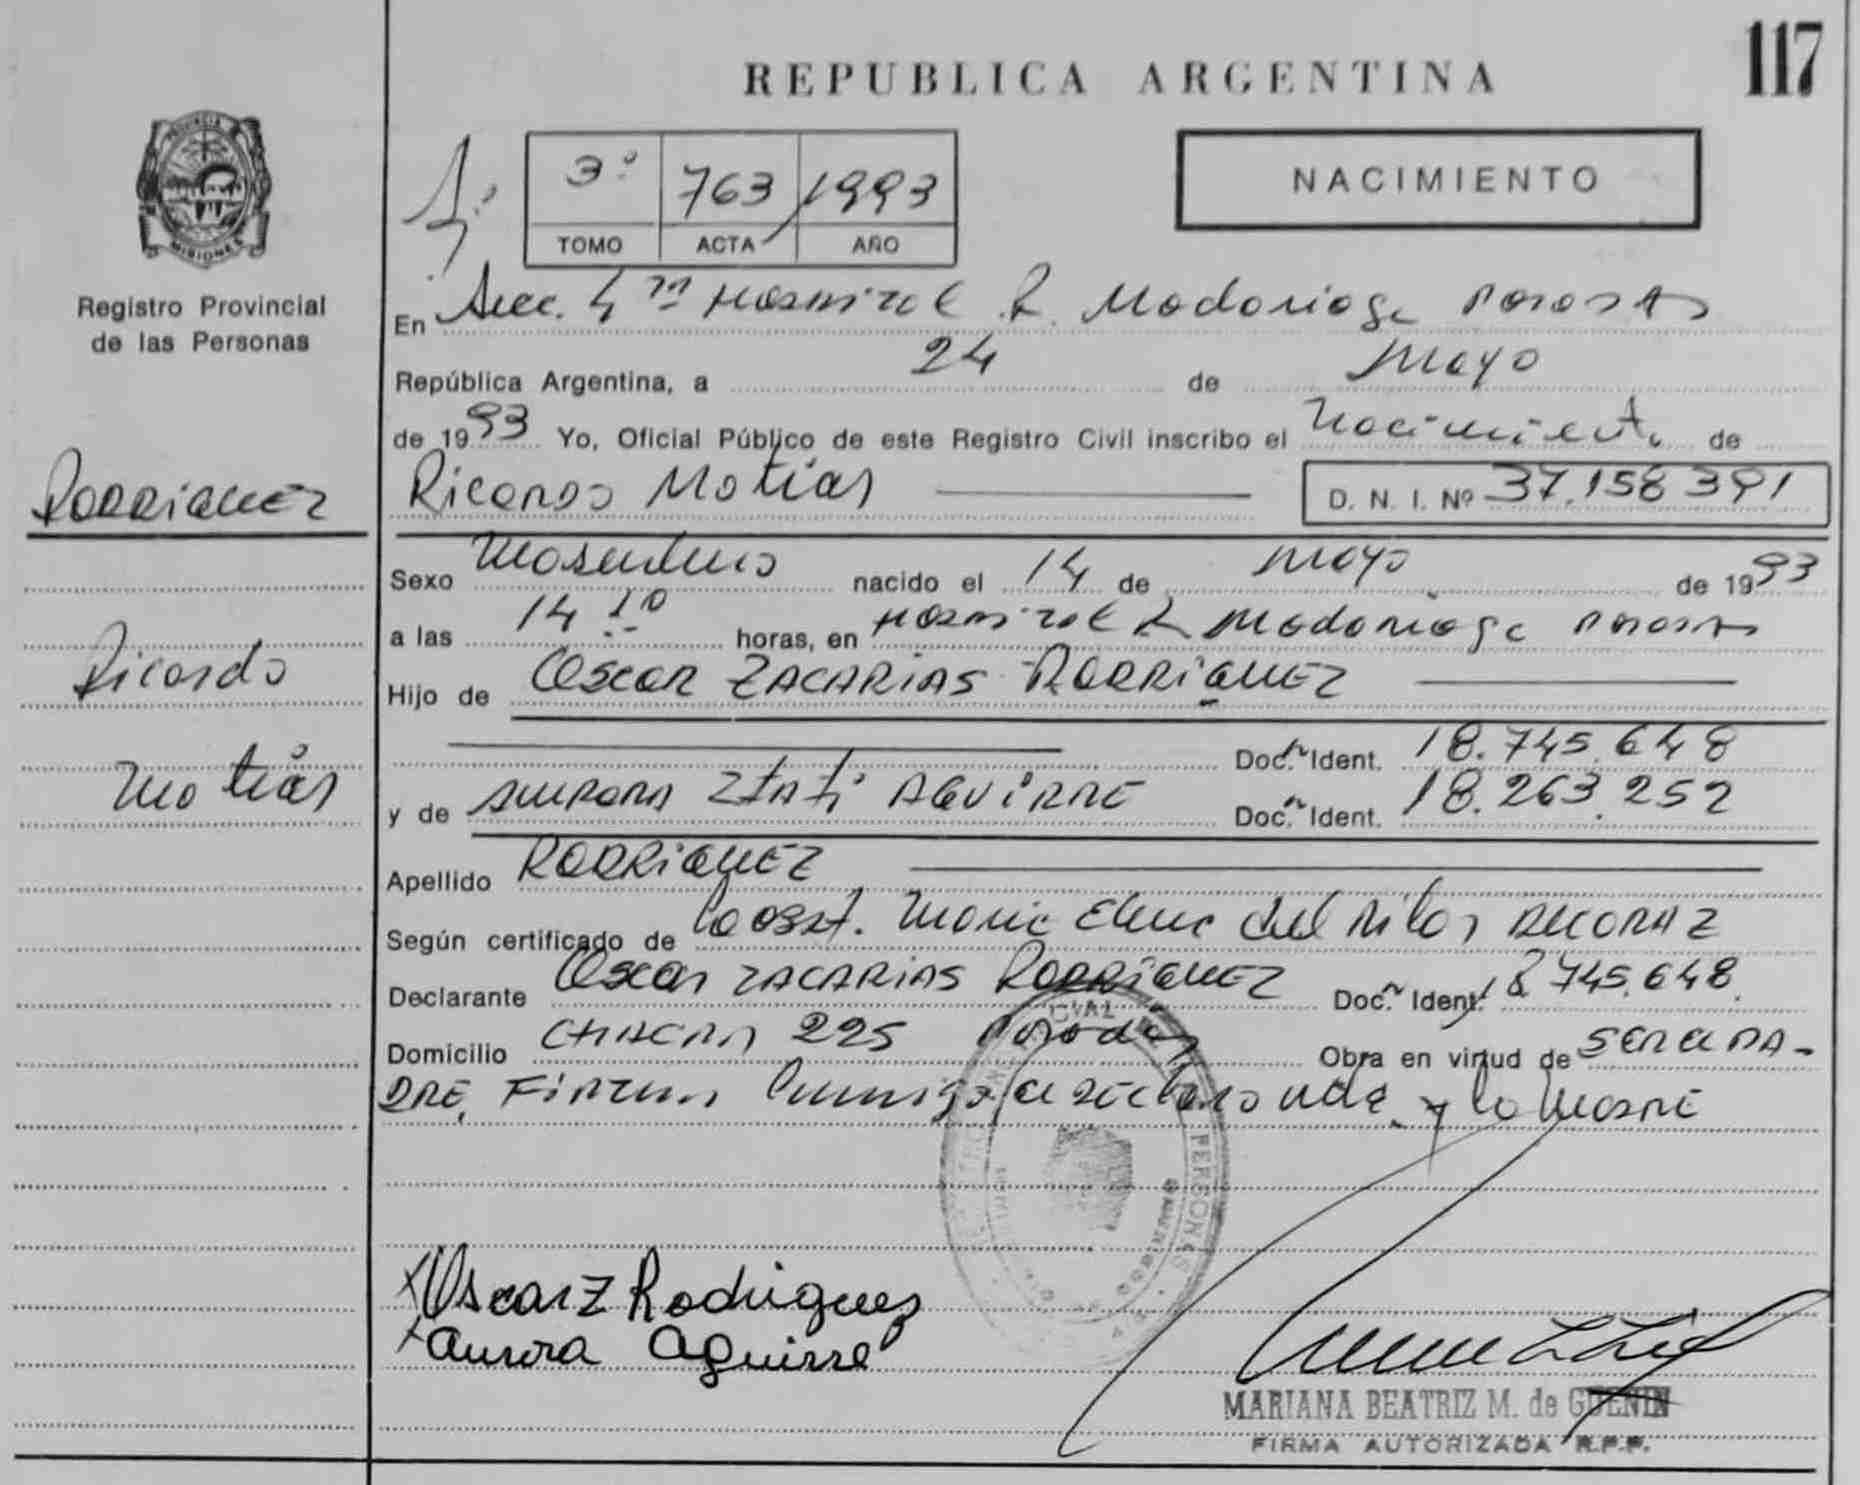 117
REPUBLICA ARGENTINA
PROVINCIA
MISIONES
Registro Provincial
de las Personas
1º
3º 763 1993
TOMO ACTA AÑO
NACIMIENTO
En Secc. 4ª Hospital R. Madariaga Posadas
República Argentina, a 24 de Mayo
de 1993 Yo, Oficial Público de este Registro Civil inscribo el Nacimiento de
RODRIGUEZ
Ricardo Matías D. N. I. Nº 37.158.391
Sexo Masculino nacido el 14 de Mayo de 1993
a las 14 10 horas, en Hospital R Madariaga Posadas
Ricardo
Hijo de Oscar ZACARIAS RODRIGUEZ
Matías
Doc. Ident. 18.745.648
y de AURORA AGUIRRE Doc. Ident. 18.263.252
Apellido RODRIGUEZ
Según certificado de Obst. Maria Elena del Pilar
Declarante Oscar ZACARIAS RODRIGUEZ Doc. Ident. 18.745.648
Domicilio CHACRA 225 Posadas Obra en virtud de SER EL PA-
DRE. Firman Conmigo el declarante y la MADRE
PERSONAS
Oscar Z Rodriguez
Aurora Aguirre
MARIANA BEATRIZ M. de GUENIN
FIRMA AUTORIZADA R.P.P.